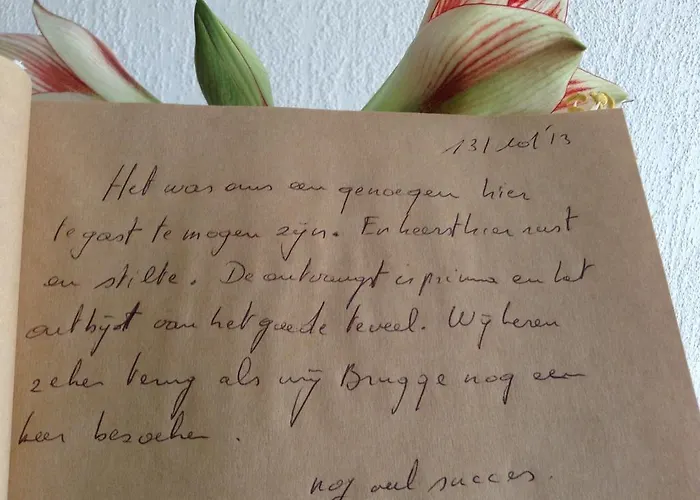 13/ '13
Het was ons een genoegen hier
te gast te mogen zijn. Er heerst hier rust
en stilte. De ontvangst is prima en het
ontbijt van het goede teveel. Wij keren
zeker terug als wij Brugge nog een
keer bezoeken.
nog veel succes.